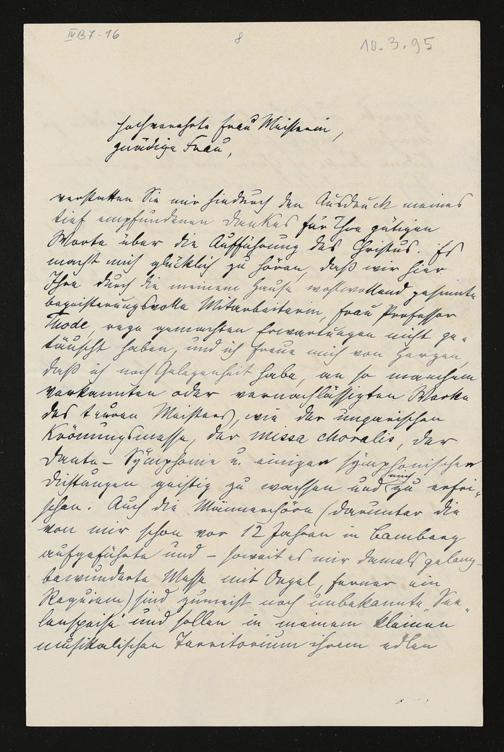 IV B 7-16
8
10.3.95
Hochverehrte Frau Meisterin,
gnädige Frau,
verstatten Sie mir hiedurch den Ausdruck meines
tief empfundenen Dankes für Ihre gütigen
Worte über die Aufführung des Christus. Es
macht mich glücklich zu hören, daß wir hier
Ihre durch die meinem Hause wohlwollend gesinnte
begeisterungsvolle Mitarbeiterin, Frau Professor
Thode, rege gemachten Erwartungen nicht ge-
täuscht haben, und ich freue mich von Herzen,
daß ich noch Gelegenheit habe, an so manchem
verkannten oder vernachlässigten Werke
des teuren Meisters, wie der ungarischen
Krönungsmesse, der Missa choralis, der
Dante-Symphonie u. einigen symphonischen
Dichtungen geistig zu wachsen und mich zu erfri-
schen. Auch die Männerchöre (darunter die
von mir schon vor 12 Jahren in Bamberg
aufgeführte und - soweit es mir damals gelang -
bewunderte Messe mit Orgel, ferner ein
Requiem) sind zumeist noch unbekannte "See-
lenspeise" und sollen in meinem kleinen
musikalischen Territorium ihrem edlen